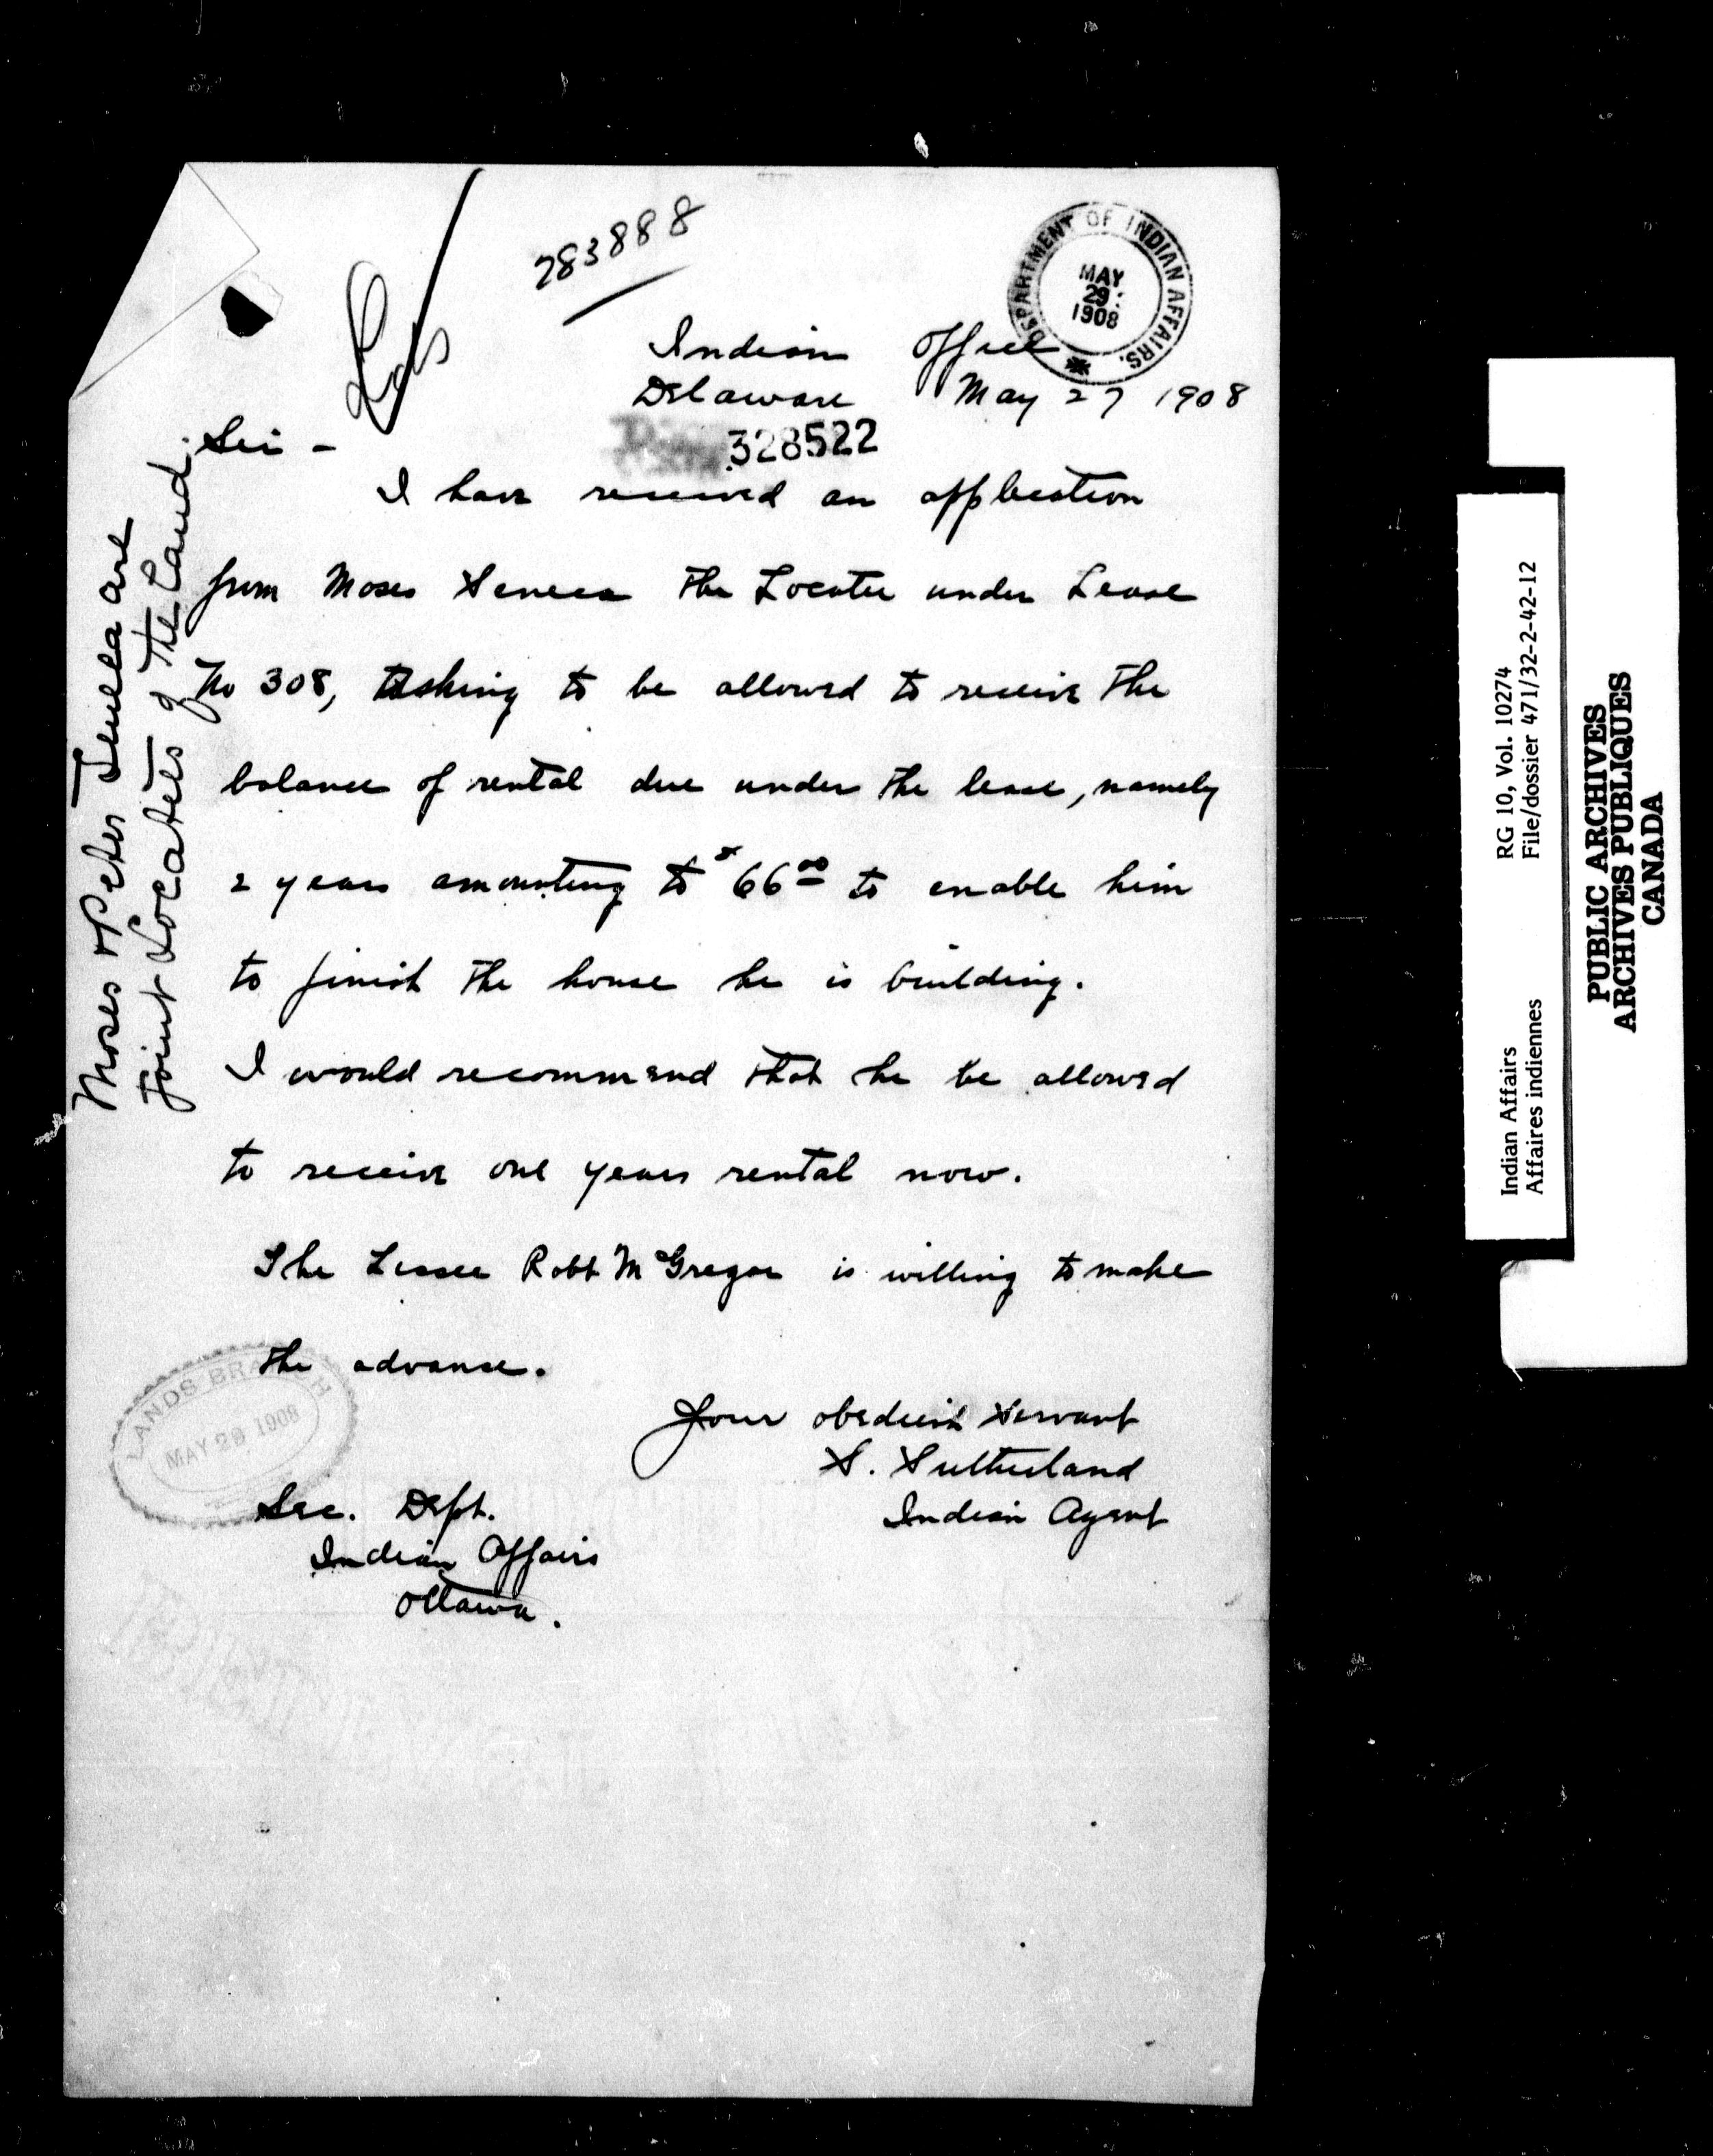 283888
DEPARTMENT OF INDIAN AFFAIRS.
MAY
29
1908
Indian Office
Delaware May 27 1908
328522
Sir -
I have received an application
from Moses Seneca the Locatee under Lease
No 308, asking to be allowed to receive the
balance of rental due under the lease, namely
2 years amounting to $66 00 to enable him
to finish the house he is building.
I would recommend that he be allowed
to receive one years rental now.
The Lessee Robt McGregor is willing to make
the advance.
Your obedient servant
S. Sutherland
Indian Agent
LANDS BRANCH
MAY 29 1908
Sec. Dept.
Indian Affairs
Ottawa.
Moses & Peter Seneca are
joint Locatees of the land.
Indian Affairs RG 10, Vol. 10274
Affaires indiennes File/dossier 471/32-2-42-12
PUBLIC ARCHIVES
ARCHIVES PUBLIQUES
CANADA